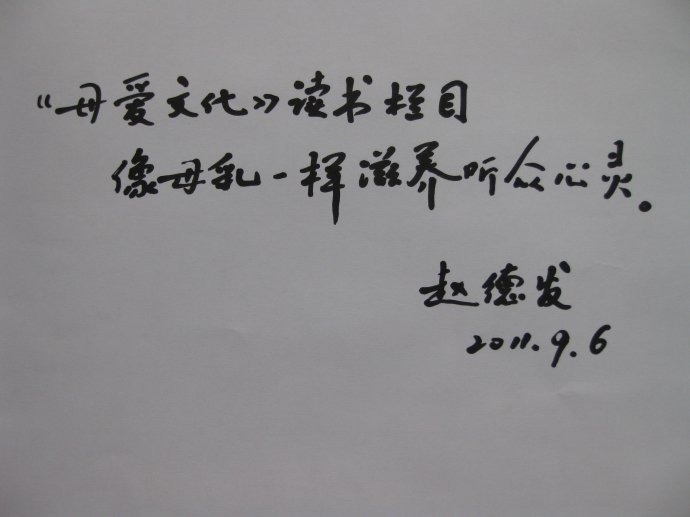 《母爱文化》读书栏目
像母乳一样滋养听众心灵。
赵德发
2011.9.6